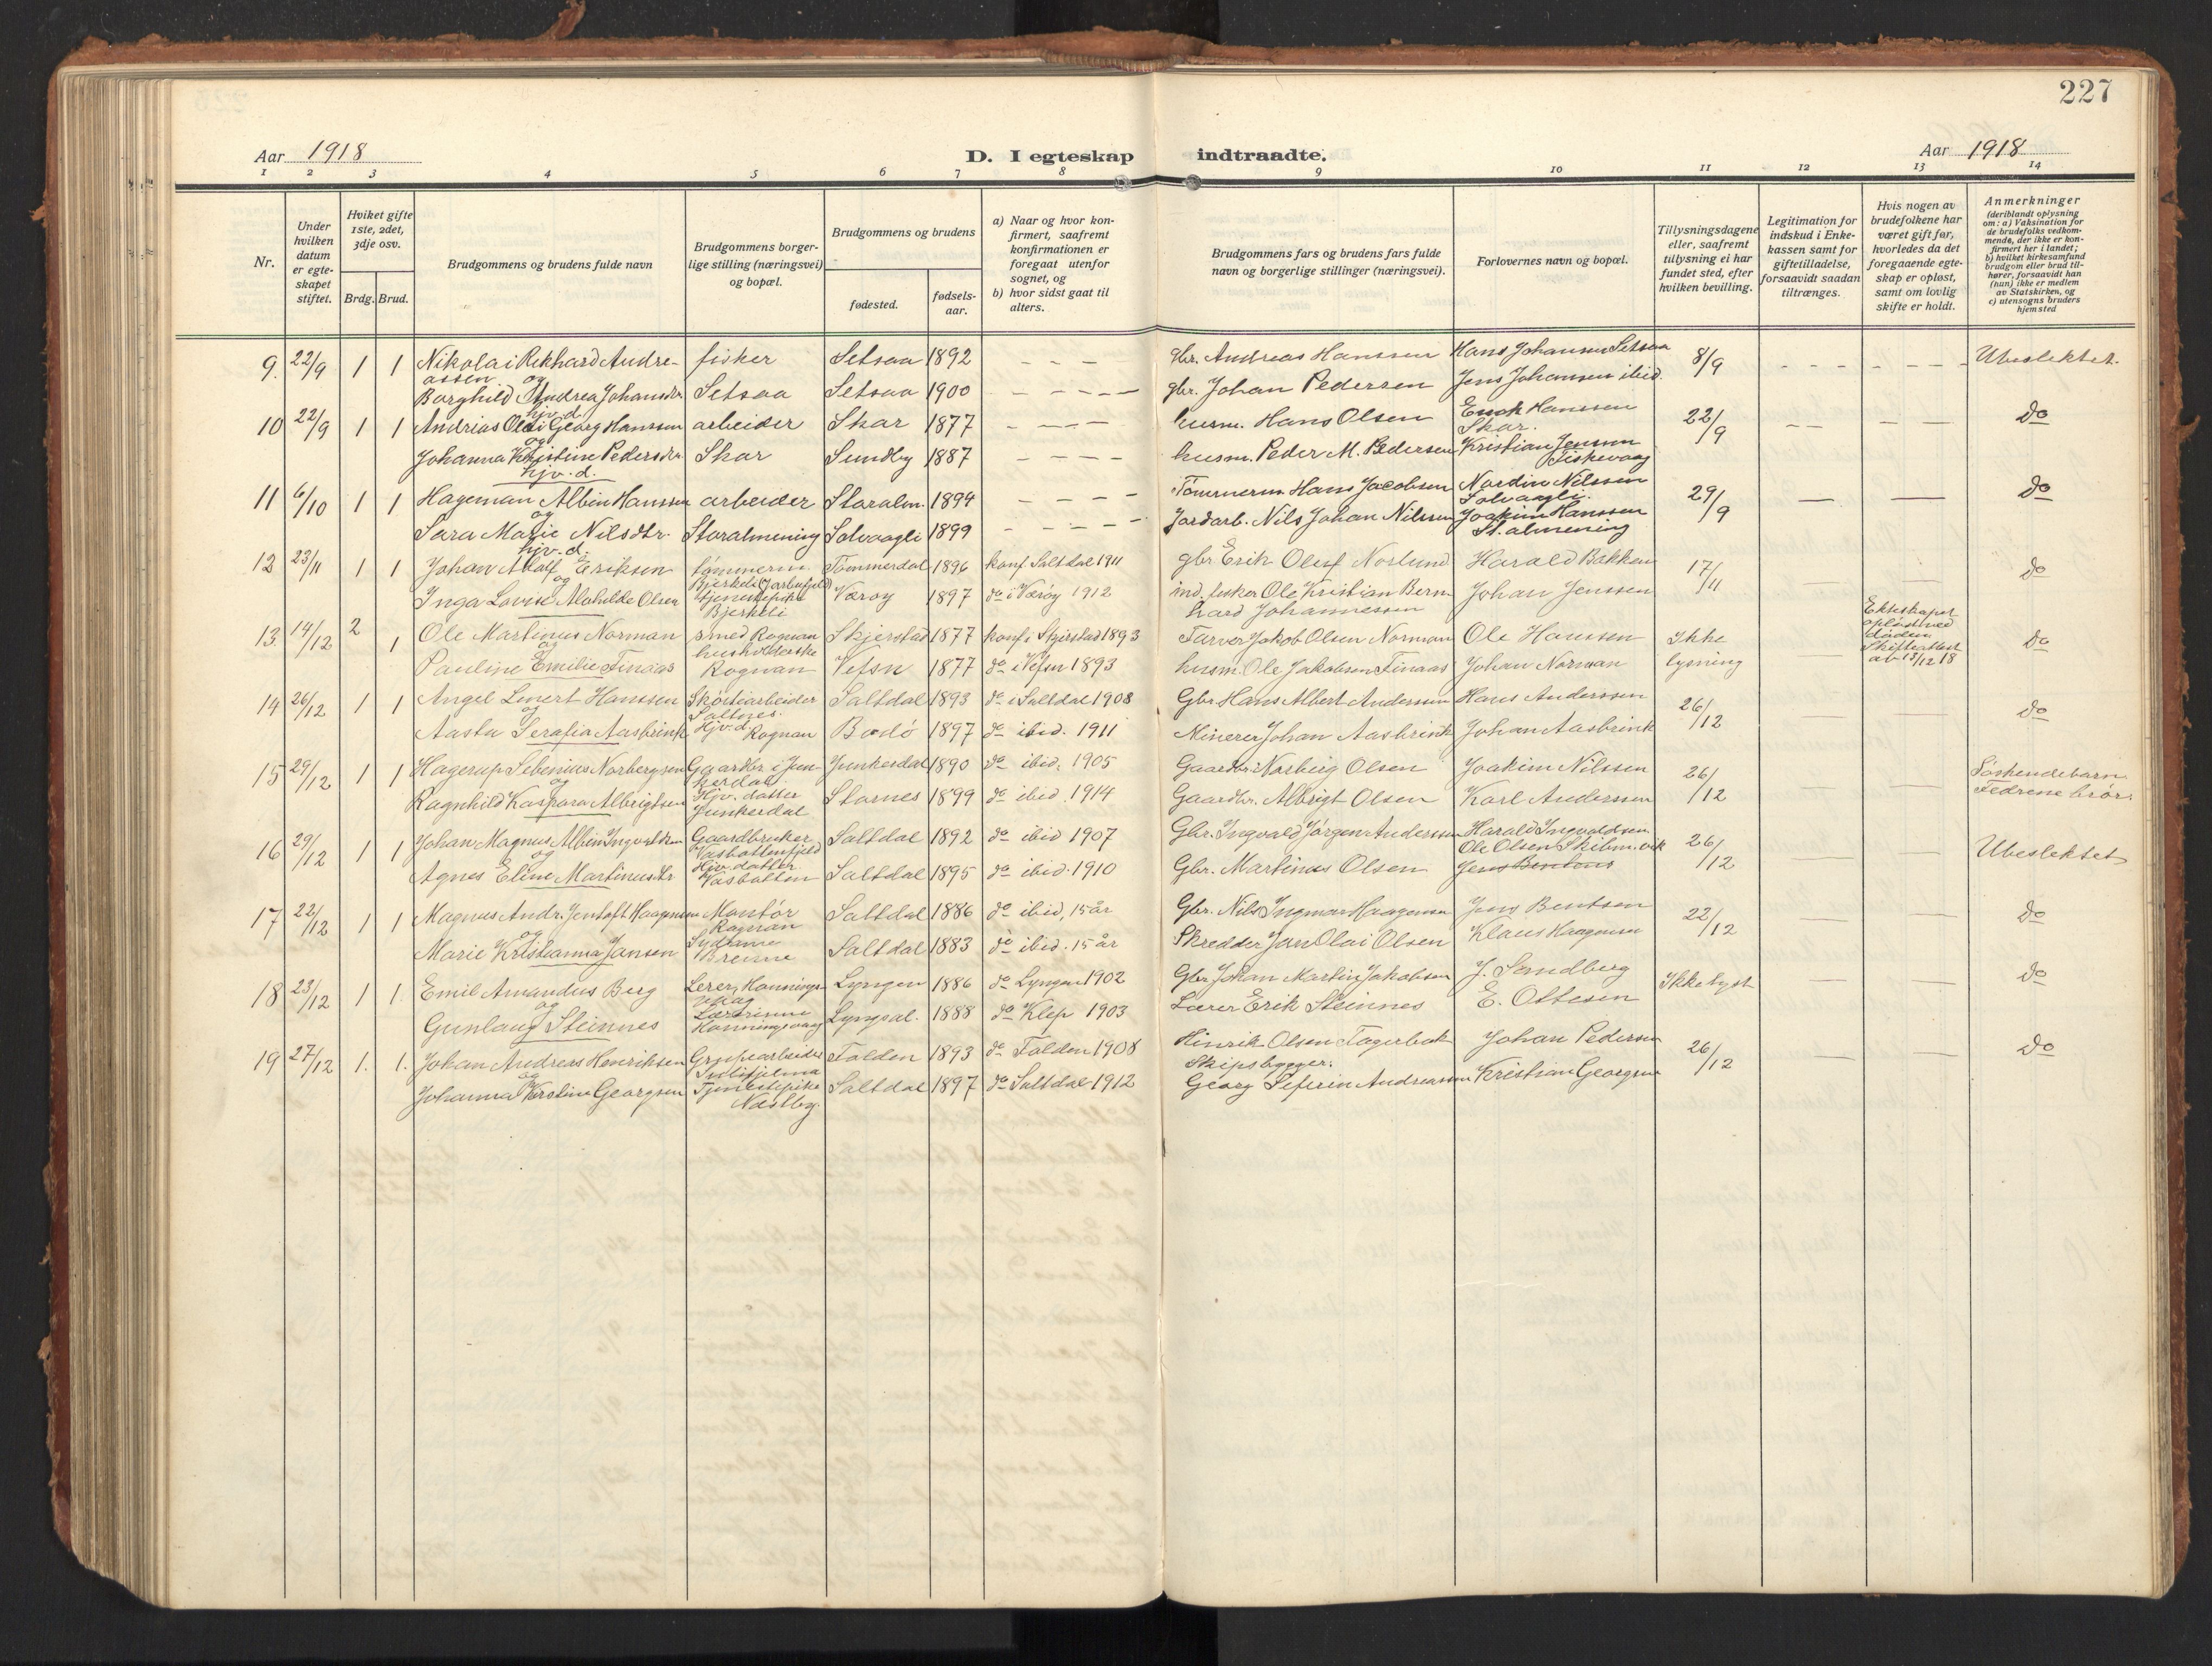 227
Aar 1918
D. I egteskap indtraadte.
Aar 1918
1 2 3 4 5 6 7 8 9 10 11 12 13 14
Nr.
Under hvilken datum er egteskapet stiftet.
Hviket gifte 1ste, 2det, 3dje osv.
Brdg. Brud.
Brudgommens og brudens fulde navn
Brudgommens borgerlige stilling (næringsvei) og bopæl.
Brudgommens og brudens
fødested.
fødselsaar.
a) Naar og hvor konfirmert, saafremt konfirmationen er foregaat utenfor sognet, og
b) hvor sidst gaat til alters.
Brudgommens fars og brudens fars fulde navn og borgerlige stillinger (næringsvei).
Forlovernes navn og bopæl.
Tillysningsdagene eller, saafremt tillysning ei har fundet sted, efter hvilken bevilling.
Legitimation for indskud i Enkekassen samt for giftetilladelse, forsaavidt saadan tiltrænges.
Hvis nogen av brudefolkene har været gift før, hvorledes da det foregaaende egteskap er opløst, samt om lovlig skifte er holdt.
Anmerkninger
(deriblandt oplysning om: a) Vaksination for de brudefolks vedkommende, der ikke er konfirmert her i landet; b) hvilket kirkesamfund brudgom eller brud tilhører, forsaavidt han (hun) ikke er medlem av Statskirken, og c) utensogns bruders hjemsted
9. 22/9 1 1 Nikolai Rikhard Andreassen fisker Setsaa 1892 - - - gbr. Andreas Hanssen Hans Johansen Setsaa 8/9 Ubeslektet.
og
Borghild Andrea Johansdtr Setsaa Setsaa 1900 - - - gbr. Johan Pedersen Jens Johansen ibid.
hjv. d.
10 22/9 1 1 Andrias Olai Georg Hanssen arbeider Skar 1877 - - - husm. Hans Olsen Enok Hanssen Skar. 22/9 do
og
Johanna Kristine Pedersdtr Skar Sundby 1887 - - - husm. Peder M. Pedersen Kristian Jensen Fiskevaag
hjv. d.
11 6/10 1 1 Hageman Albin Hanssen arbeider Storalm. 1894 - - - Tømmerm. Hans Jacobsen Nordin Nilssen Solvaagli. 29/9 do
og
Sara Marie Nilsdtr. Storalmening Solvaagli 1899 - - - Jordarb. Nils Johan Nilssen Joakim Hanssen St. almening
hjv. d.
12 23/11 1 1 Johan Adolf Eriksen tømmerm. Bjerkeli Tømmerdal 1896 konf. Saltdal 1911 gbr Erik Oluf Norlund Harald Bakken 17/11 do
og
Inga Lovise Mathilde Olsen tjenestepike Bjerkeli Værøy 1897 do i Værøy 1912 ind. fisker Ole Kristian Bernhard Johannessen Johan Jenssen
13. 14/12 2 1 Ole Martinus Norman smed Rognan Skjerstad 1877 konf. i Skjerstad 1893 Farver Jakob Olsen Norman Ole Hanssen Ikke lysning Ekteskapet opløst ved döden Skifteattest av 13/12 18 do
og
Pauline Emilie Finaas husholderske Rognan Vefsn 1877 do i Vefsn 1893 husm. Ole Jakobsen Finaas Johan Norman
14 26/12 1 1 Angel Linert Hanssen Skötearbeider Saltnes. Saltdal 1893 do i Saltdal 1908 Gbr Hans Albert Anderssen Hans Anderssen 26/12 do
og
Aasta Serafia Aasbrink Hjv. d Rognan Bodö 1897 do ibid. 1911 Minerer Johan Aasbrink Johan Aasbrink
15 29/12 1 1 Hagerup Sebenius Norbergsen Gaardbr. i Junkerdal Junkerdal 1890 do ibid. 1905 Gaardbr. Norberg Olsen Joakim Nilssen 26/12 Söskendebarn Fedrene brör.
og
Ragnhild Kaspara Albrigtsen Hjv. datter Junkerdal Stornes 1899 do ibid. 1914 Gaardbr. Albrigt Olsen Karl Anderssen
16 29/12 1 1 Johan Magnus Albin Ingvaldsen Gaardbruker Vasbottenfjeld Saltdal 1892 do ibid 1907 Gbr. Ingvald Jørgen Anderssen Harald Ingvaldsen 26/12 Ubeslektet
og
Agnes Eline Martinusdtr Hjv. datter Vasbotten Saltdal 1895 do ibid. 1910 Gbr. Martinus Olsen Ole Olsen Skibm.vik Jens Bentsens
17 22/12 1 1 Magnus Andr. Jentoft Haagensen Montör Rognan Saltdal 1886 do ibid, 15 år Gbr. Nils Ingmar Haagensen Jens Bentsen 22/12 do
og
Marie Kristianna Jansen Sydame Brenne Saltdal 1883 do ibid. 15 år Skredder Jan Olai Olsen Klaus Haagensen
18 23/12 1 1. Emil Amandus Berg Lerer, Honningsvaag Lyngen 1886 do Lyngen 1902 Gbr. Johan Martin Jakobsen J. Sandberg Ikke lyst do
og
Gunlaug Steinnes Lærerinne Honningsvaag 1888 do Klep 1903 Lærer Erik Steinnes E. Ottesen
19 27/12 1. 1. Johan Andreas Henriksen Grubearbeider Sulitjelma Folden 1893 do Folden 1908 Hinrik Olsen Fagerbak Johan Pedersen 26/12 do
og
Johanna Kirstine Georgsen Tjenestepike Næstby. Saltdal 1897 do Saltdal 1912 Skipsbygger. Georg Seferin Andreassen Kristian Georgsen